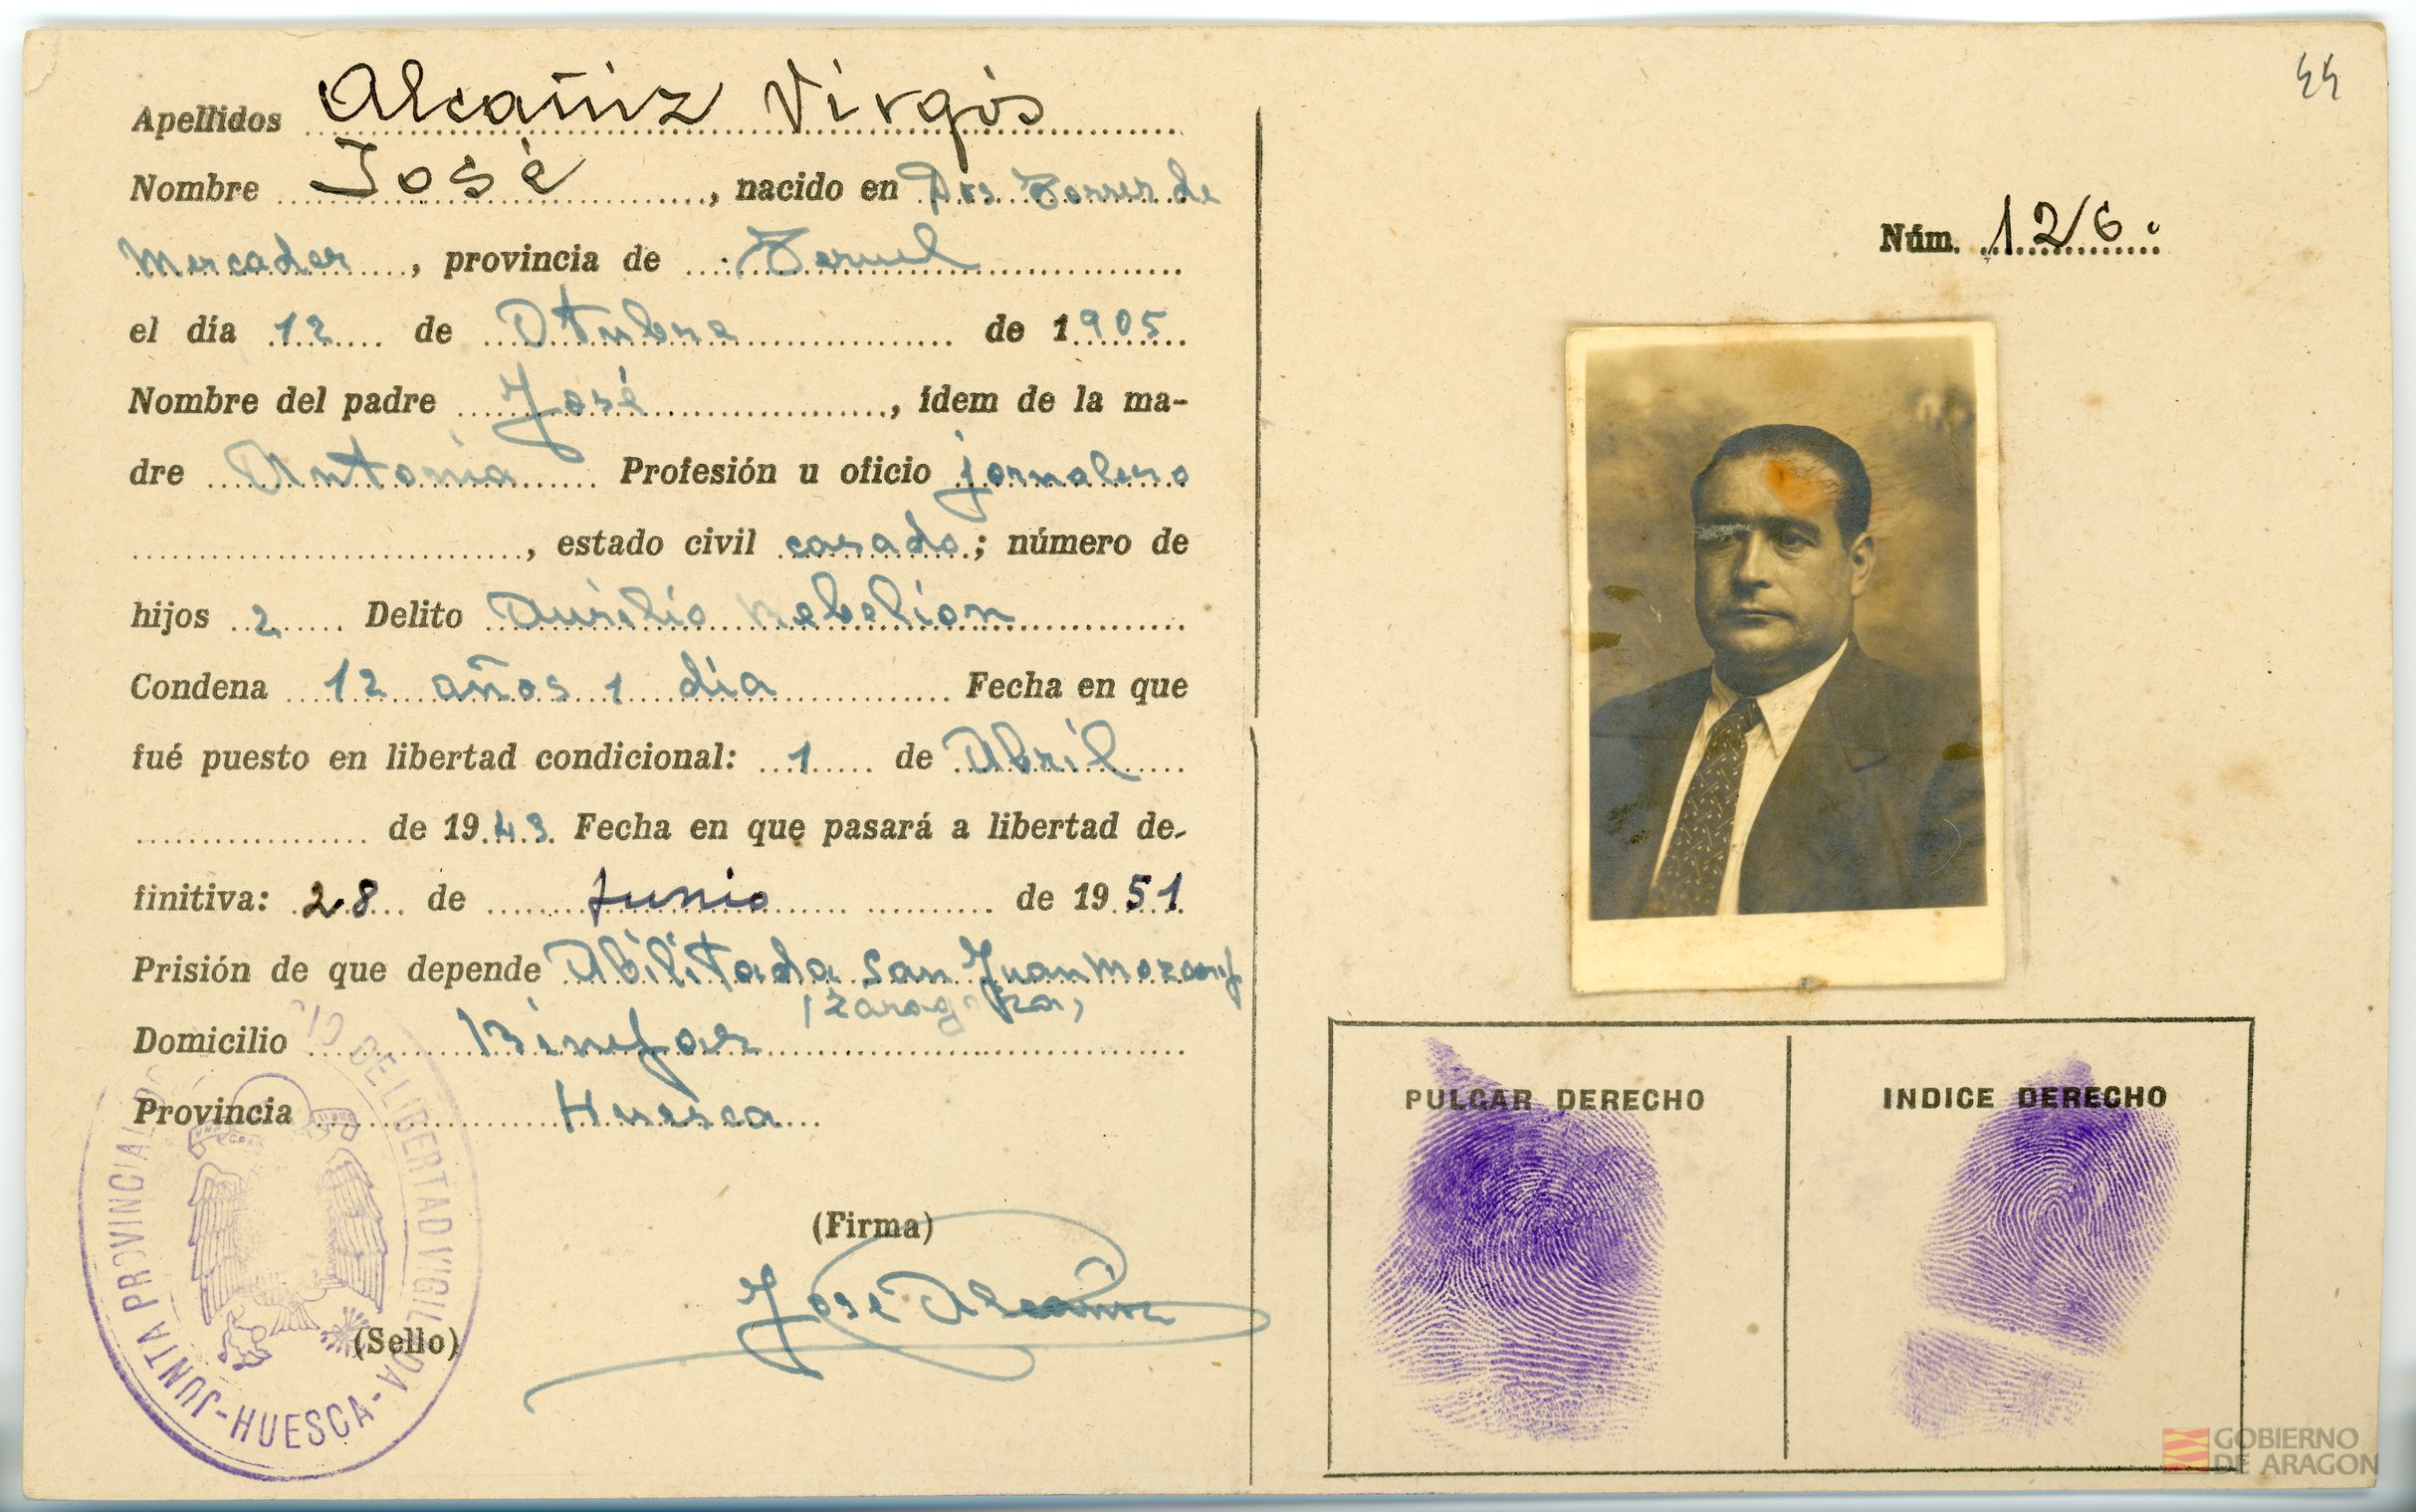 44
Apellidos Alcañiz Virgós
Nombre José, nacido en Dos Torres de
Mercader, provincia de Teruel
el día 12 de Otubre de 1905
Nombre del padre José, ídem de la ma-
dre Antonia Profesión u oficio jornalero
, estado civil casado; número de
hijos 2 Delito Aurilio Rebelion
Condena 12 años 1 día Fecha en que
fué puesto en libertad condicional: 1 de Abril
de 1943. Fecha en que pasará a libertad de-
finitiva: 28 de Junio de 1951
Prisión de que depende Abilitada San Juan
(Zaragoza)
Domicilio Binefar
Provincia Huesca
(Firma)
José Alcañiz
(Sello)
JUNTA PROVINCIAL DE LIBERTAD VIGILADA
-HUESCA-
Núm. 126.
PULGAR DERECHO
INDICE DERECHO
GOBIERNO
DE ARAGON